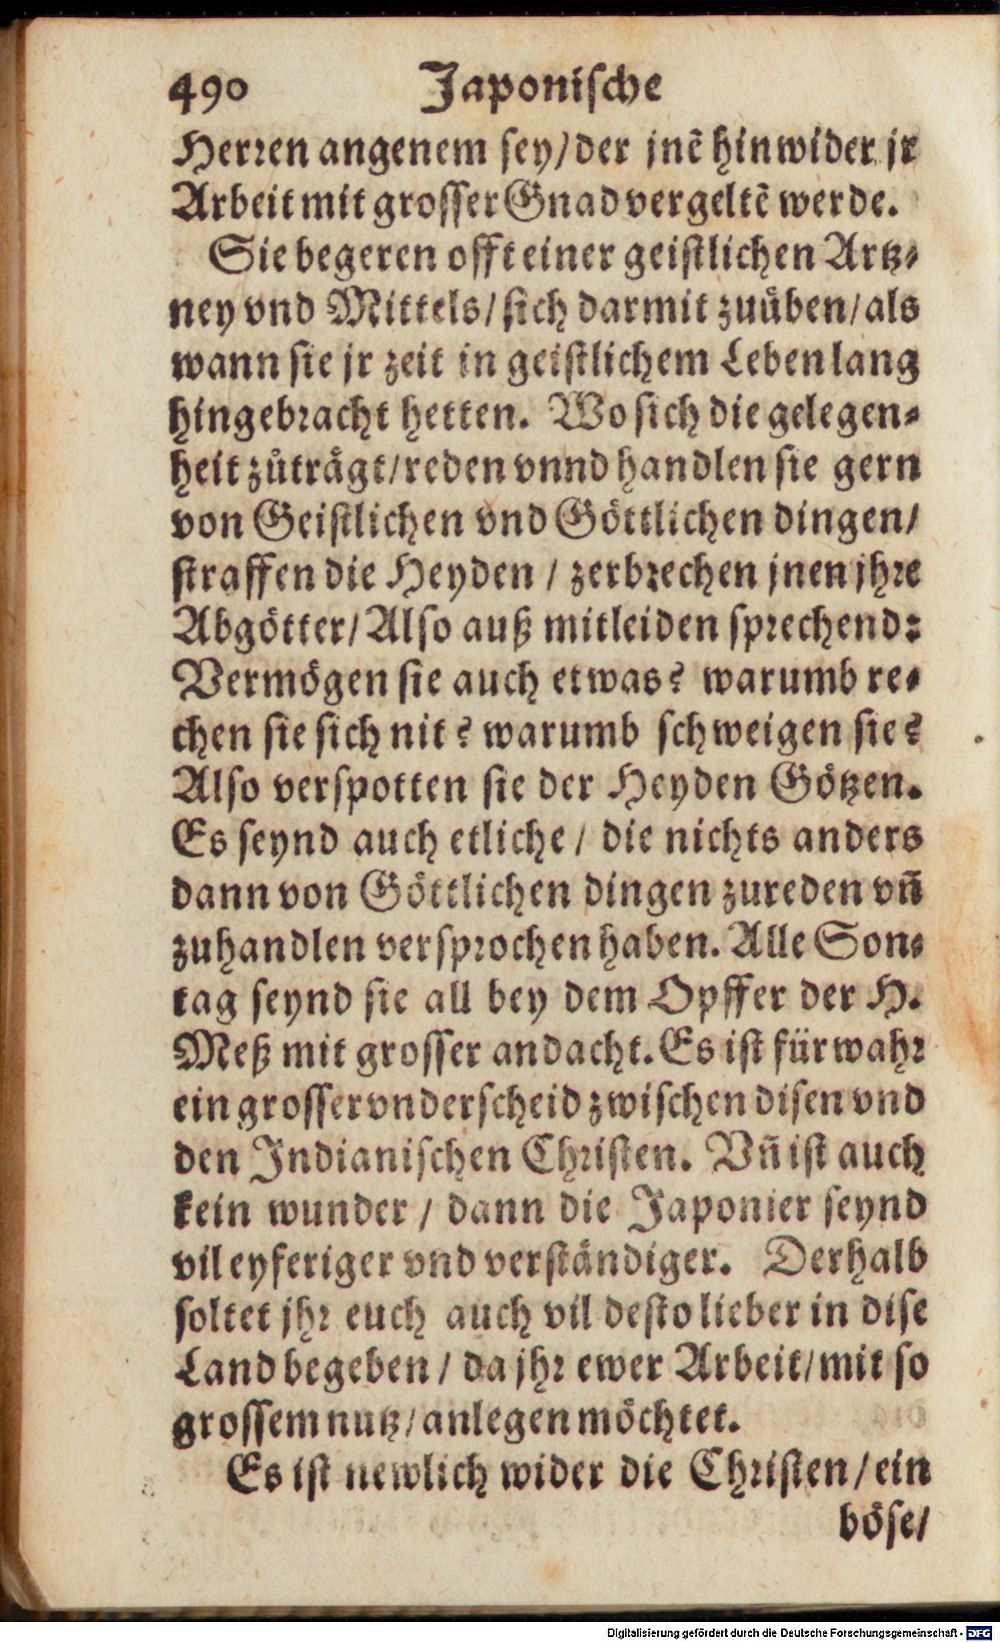 490 Japonische
Herren angenem sey/der jnẽ hinwider jr
Arbeit mit grosser Gnad vergeltẽ werde.
Sie begeren offt einer geistlichen Artz-
ney vnd Mittels/sich darmit zuüben/als
wann sie jr zeit in geistlichem Leben lang
hingebracht hetten. Wo sich die gelegen-
heit zůträgt/reden vnnd handlen sie gern
von Geistlichen vnd Göttlichen dingen/
straffen die Heyden / zerbrechen jnen jhre
Abgötter/Also auß mitleiden sprechend:
Vermögen sie auch etwas? warumb re-
chen sie sich nit? warumb schweigen sie?
Also verspotten sie der Heyden Götzen.
Es seynd auch etliche / die nichts anders
dann von Göttlichen dingen zureden vñ
zuhandlen versprochen haben. Alle Son-
tag seynd sie all bey dem Opffer der H.
Meß mit grosser andacht. Es ist fürwahr
ein grosser vnderscheid zwischen disen vnd
den Indianischen Christen. Vñ ist auch
kein wunder / dann die Japonier seynd
vil eyferiger vnd verständiger. Derhalb
soltet jhr euch auch vil desto lieber in dise
Land begeben / da jhr ewer Arbeit/mit so
grossem nutz/anlegen möchtet.
Es ist newlich wider die Christen/ein
böse/
Digitalisierung gefördert durch die Deutsche Forschungsgemeinschaft - DFG